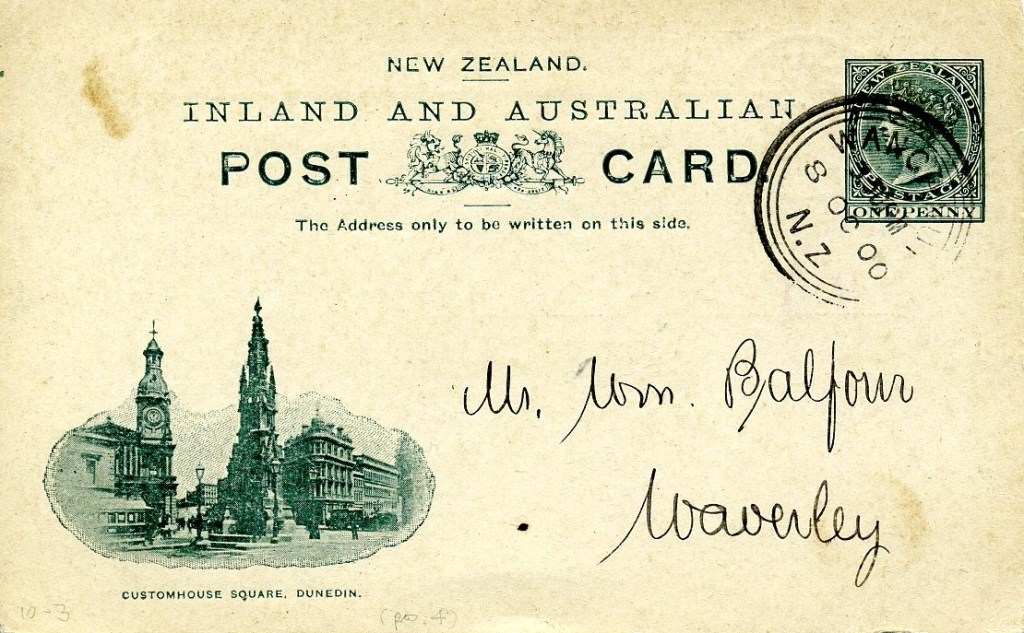 NEW ZEALAND.
INLAND AND AUSTRALIAN
POST CARD.
The Address only to be written on this side.
NEW ZEALAND
POSTAGE
ONE PENNY
8 OC 00
N.Z
Mr. Wm. Balfour
Waverley
CUSTOMHOUSE SQUARE, DUNEDIN.
10-3